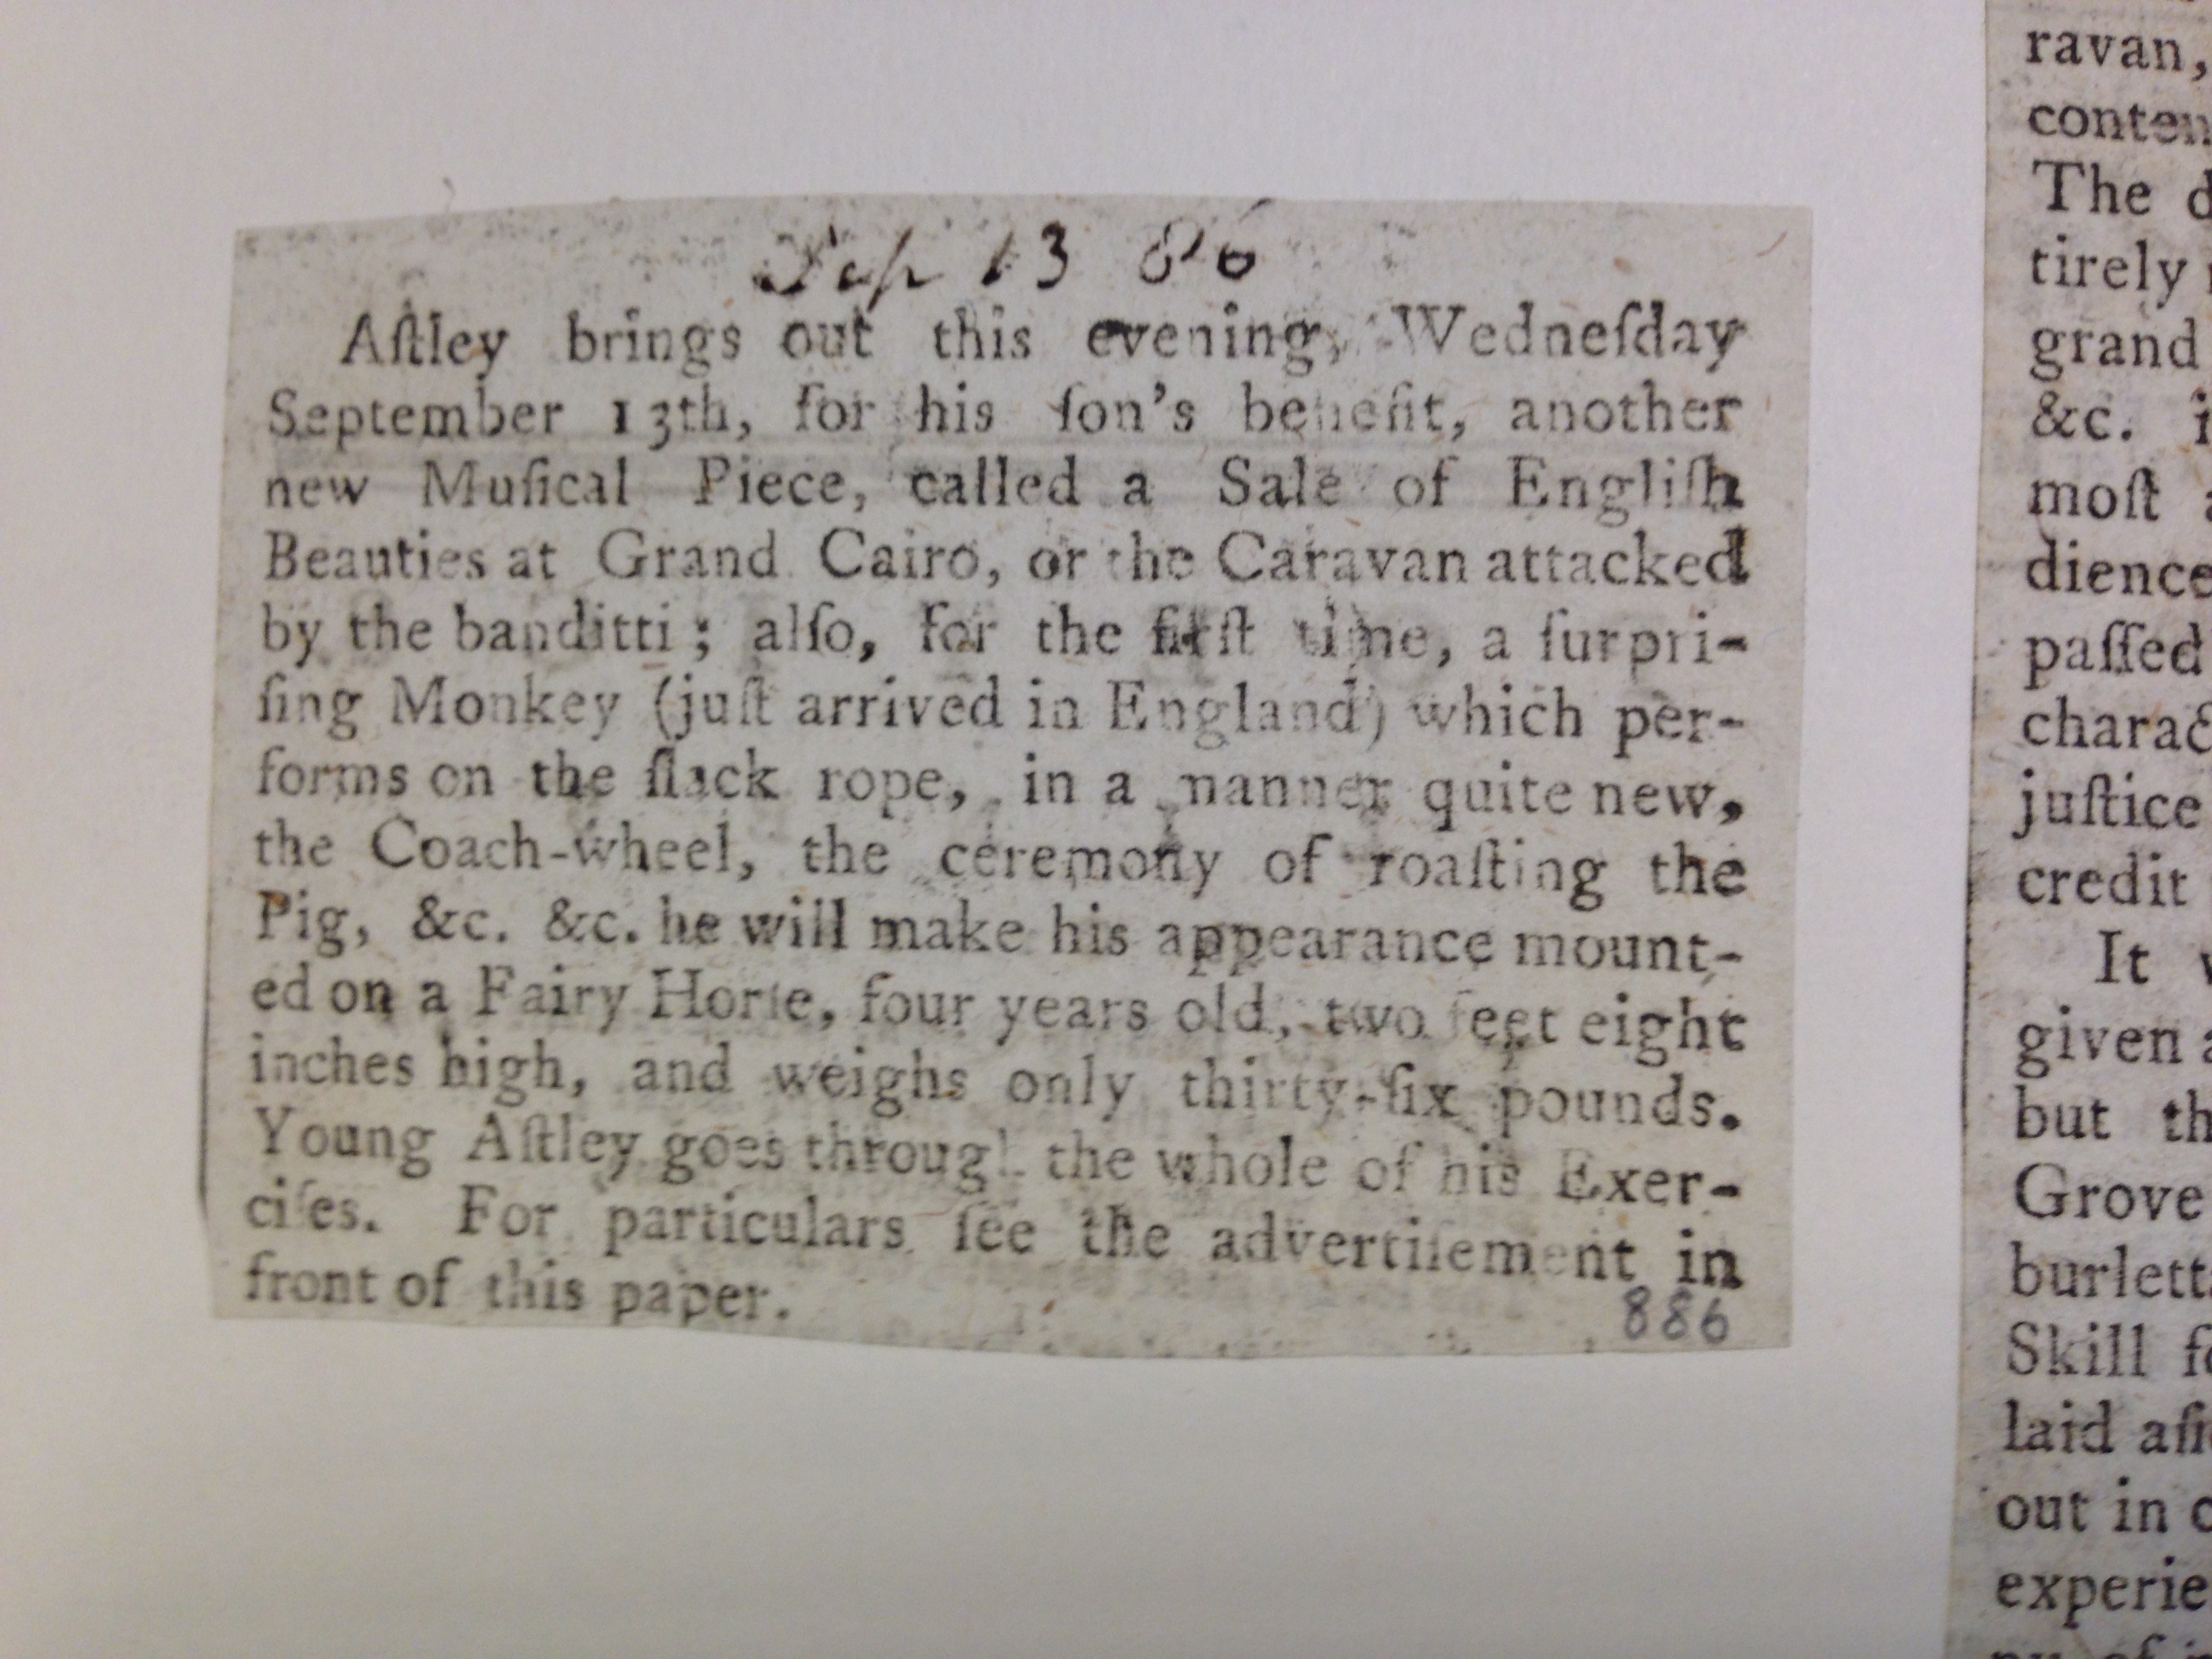 Sep 13 86
Aſtley brings out this evening, Wedneſday
September 13th, for his ſon's benefit, another
new Muſical Piece, called a Sale of Engliſh
Beauties at Grand Cairo, or the Caravan attacked
by the banditti; alſo, for the firſt time, a ſurpri-
ſing Monkey (juſt arrived in England) which per-
forms on the ſlack rope, in a manner quite new,
the Coach-wheel, the ceremony of roaſting the
Pig, &c. &c. he will make his appearance mount-
ed on a Fairy Horſe, four years old, two feet eight
inches high, and weighs only thirty-ſix pounds.
Young Aſtley goes through the whole of his Exer-
ciſes. For particulars ſee the advertiſement in
front of this paper.
886
ravan,
conten
The d
tirely
grand
&c. i
moſt a
dience
paſſed
charac
juſtice
credit
It w
given a
but th
Grove
burlett
Skill fo
laid aſi
out in c
experie